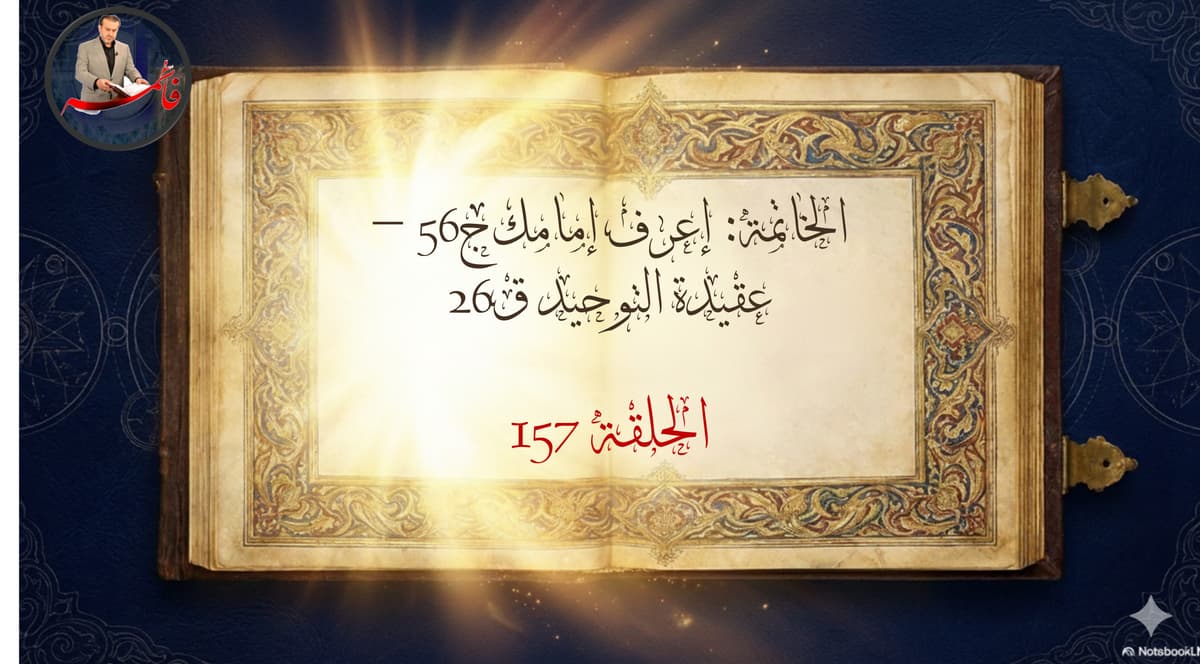 فاطمة
الخاتمة: إعرف إمامك ج56 –
عقيدة التوحيد ق26
الحلقة 157
NotsbookL